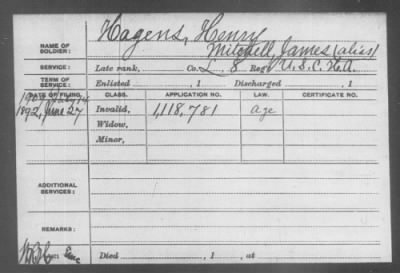 Hagens, Henry
NAME OF SOLDIER: Mitchell, James (alias)
SERVICE: Late rank, Co. L, 8 Reg't U. S. C. H. A.
TERM OF SERVICE: Enlisted , 1 Discharged , 1
DATE OF FILING. CLASS. APPLICATION NO. LAW. CERTIFICATE NO.
July 14
1892, June 27 Invalid, 1,118,781 Age
Widow,
Minor,
ADDITIONAL SERVICES:
REMARKS:
Died , 1 , at